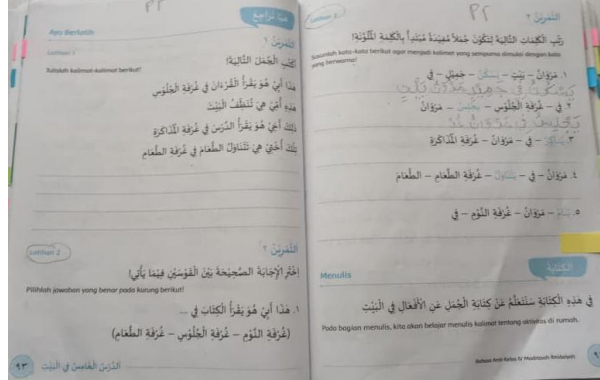 PR
هَيَّا نُرَاجِعْ
Ayo Berlatih
Latihan 1
التَّمْرِيْنُ ١
اُكْتُبِ الْجُمَلَ التَّالِيَةَ!
Tulislah kalimat-kalimat berikut!
هَذَا أَبِيْ هُوَ يَقْرَأُ الْقُرْءَانَ فِي غُرْفَةِ الْجُلُوْسِ
هَذِهِ أُمِّيْ هِيَ تُنَظِّفُ الْبَيْتَ
ذَلِكَ أَخِيْ هُوَ يَقْرَأُ الدَّرْسَ فِي غُرْفَةِ الْمُذَاكَرَةِ
تِلْكَ أُخْتِيْ هِيَ تَتَنَاوَلُ الطَّعَامَ فِي غُرْفَةِ الطَّعَامِ
Latihan 2
التَّمْرِيْنُ ٢
اِخْتَرِ الْإِجَابَةَ الصَّحِيْحَةَ بَيْنَ الْقَوْسَيْنِ فِيْمَا يَأْتِي!
Pilihlah jawaban yang benar pada kurung berikut!
١. هَذَا أَبِيْ هُوَ يَقْرَأُ الْكِتَابَ فِي ...
(غُرْفَةِ النَّوْمِ – غُرْفَةِ الْجُلُوْسِ – غُرْفَةِ الطَّعَامِ)
الدَّرْسُ الْخَامِسُ فِي الْبَيْتِ
٩٣
PR
Latihan 3
التَّمْرِيْنُ ٣
رَتِّبِ الْكَلِمَاتِ التَّالِيَةَ لِتَكُوْنَ جُمَلًا مُفِيْدَةً مُبْتَدِأً بِالْكَلِمَةِ الْمُلَوَّنَةِ!
Susunlah kata-kata berikut agar menjadi kalimat yang sempurna dimulai dengan kata yang berwarna!
١. مَرْوَانُ – بَيْتٍ – يَسْكُنُ – جَمِيْلٍ – فِي
٢. فِي – غُرْفَةِ الْجُلُوْسِ – يَجْلِسُ – مَرْوَانُ
٣. يُذَاكِرُ – فِي – مَرْوَانُ – غُرْفَةِ الْمُذَاكَرَةِ
٤. مَرْوَانُ – فِي – يَتَنَاوَلُ – غُرْفَةِ الطَّعَامِ – الطَّعَامَ
٥. يَنَامُ – مَرْوَانُ – غُرْفَةِ النَّوْمِ – فِي
Menulis
الْكِتَابَةُ
فِي هَذِهِ الْكِتَابَةِ سَنَتَعَلَّمُ عَنْ كِتَابَةِ الْجُمَلِ عَنِ الْأَفْعَالِ فِي الْبَيْتِ
Pada bagian menulis, kita akan belajar menulis kalimat tentang aktivitas di rumah.
Bahasa Arab Kelas IV Madrasah Ibtidaiyah